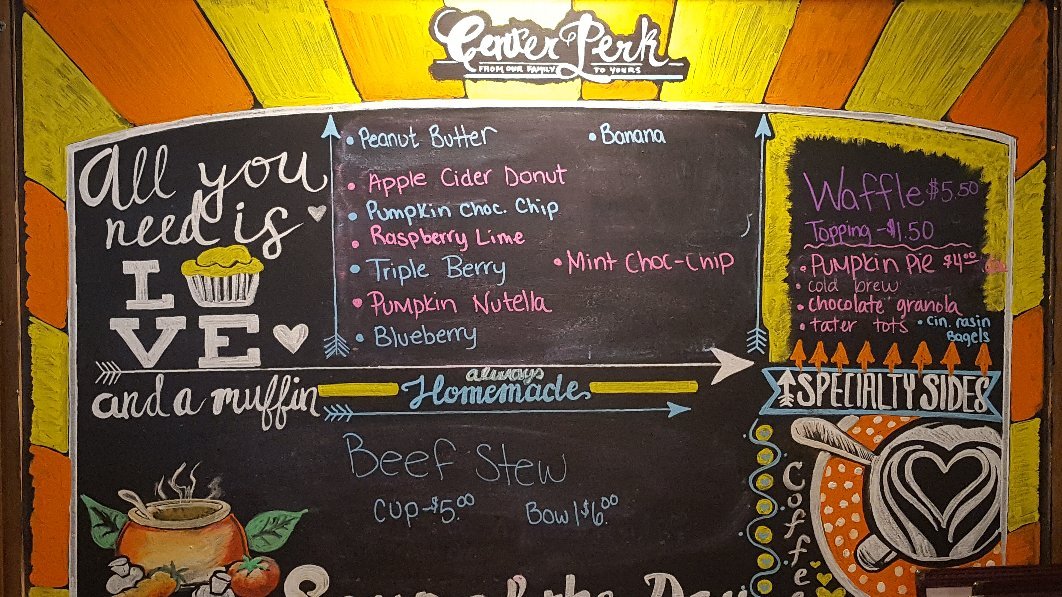 Center Perk
FROM OUR FAMILY TO YOURS
All you
need is
LOVE
and a muffin
• Peanut Butter
• Banana
• Apple Cider Donut
• Pumpkin Choc. Chip
• Raspberry Lime
• Triple Berry
• Mint Choc-Chip
• Pumpkin Nutella
• Blueberry
always
Homemade
Waffle $5.50
Topping - $1.50
• Pumpkin Pie $4.00
• cold brew
• chocolate granola
• tater tots
• Cin. rasin
Bagels
SPECIALTY SIDES
Beef Stew
Cup - $5.00
Bowl $6.00
Coffee
Soup of the Day